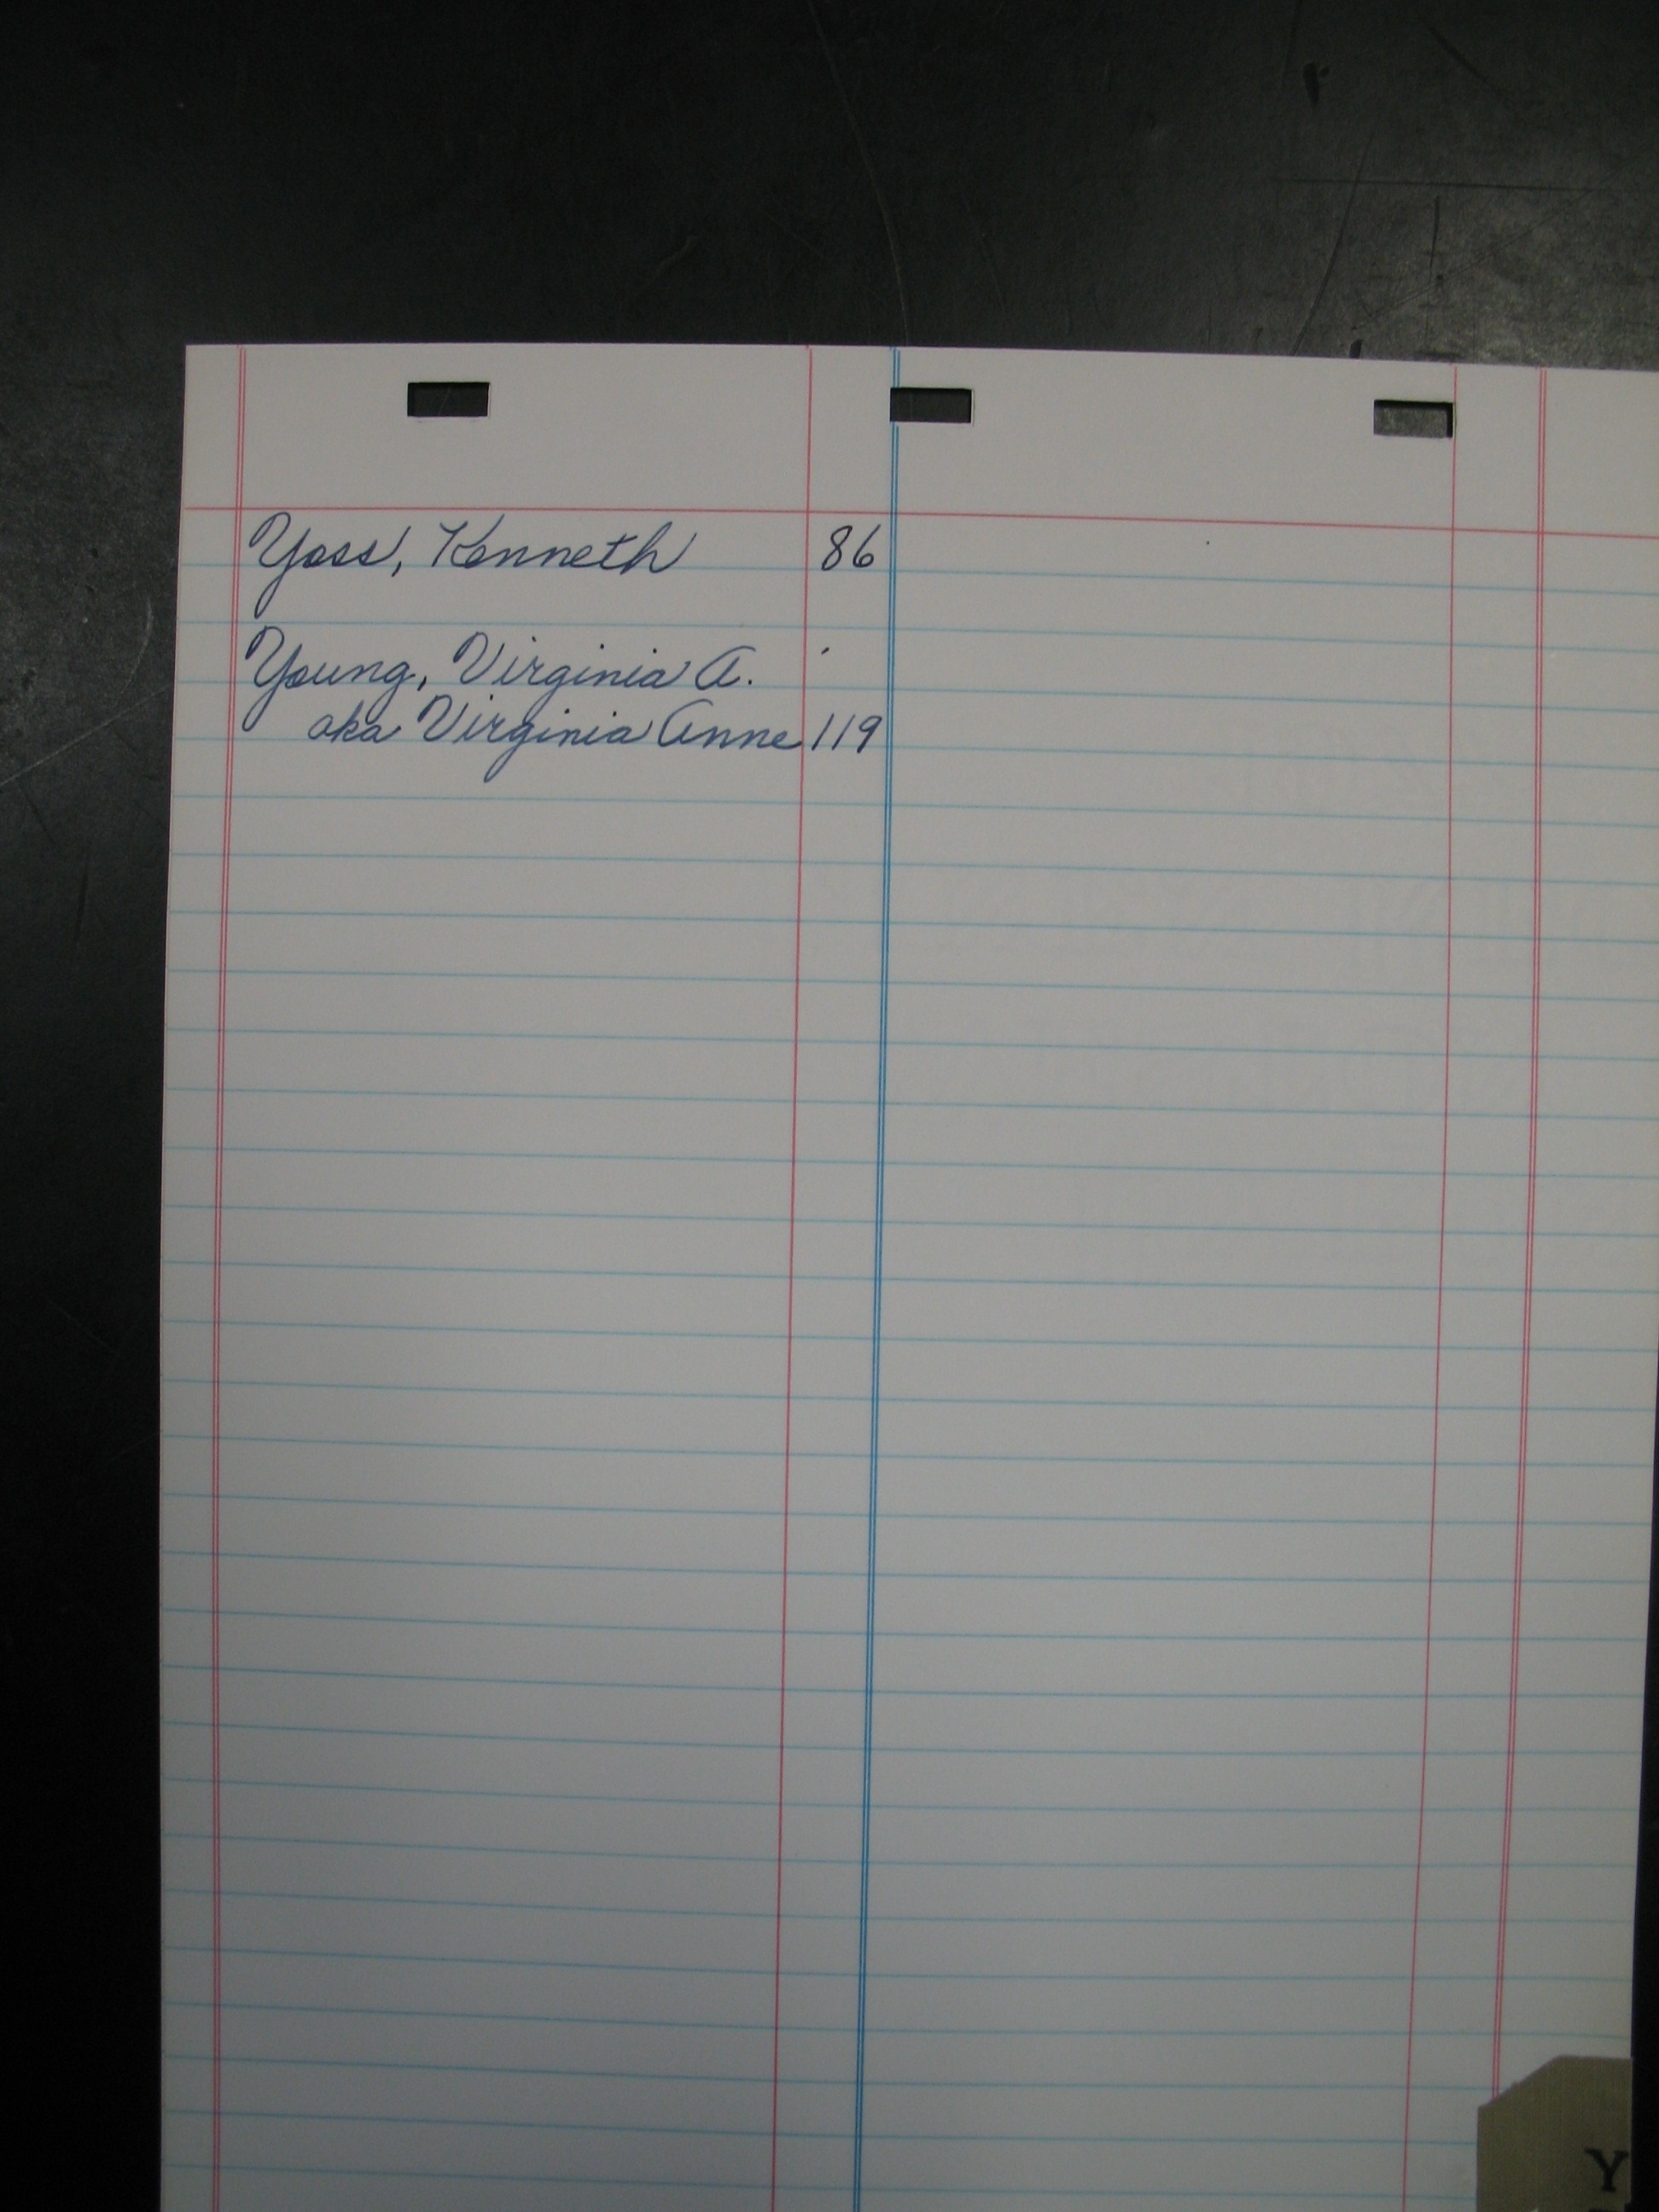 Yoss, Kenneth 86
Young, Virginia A.
aka Virginia Anne 119
Y